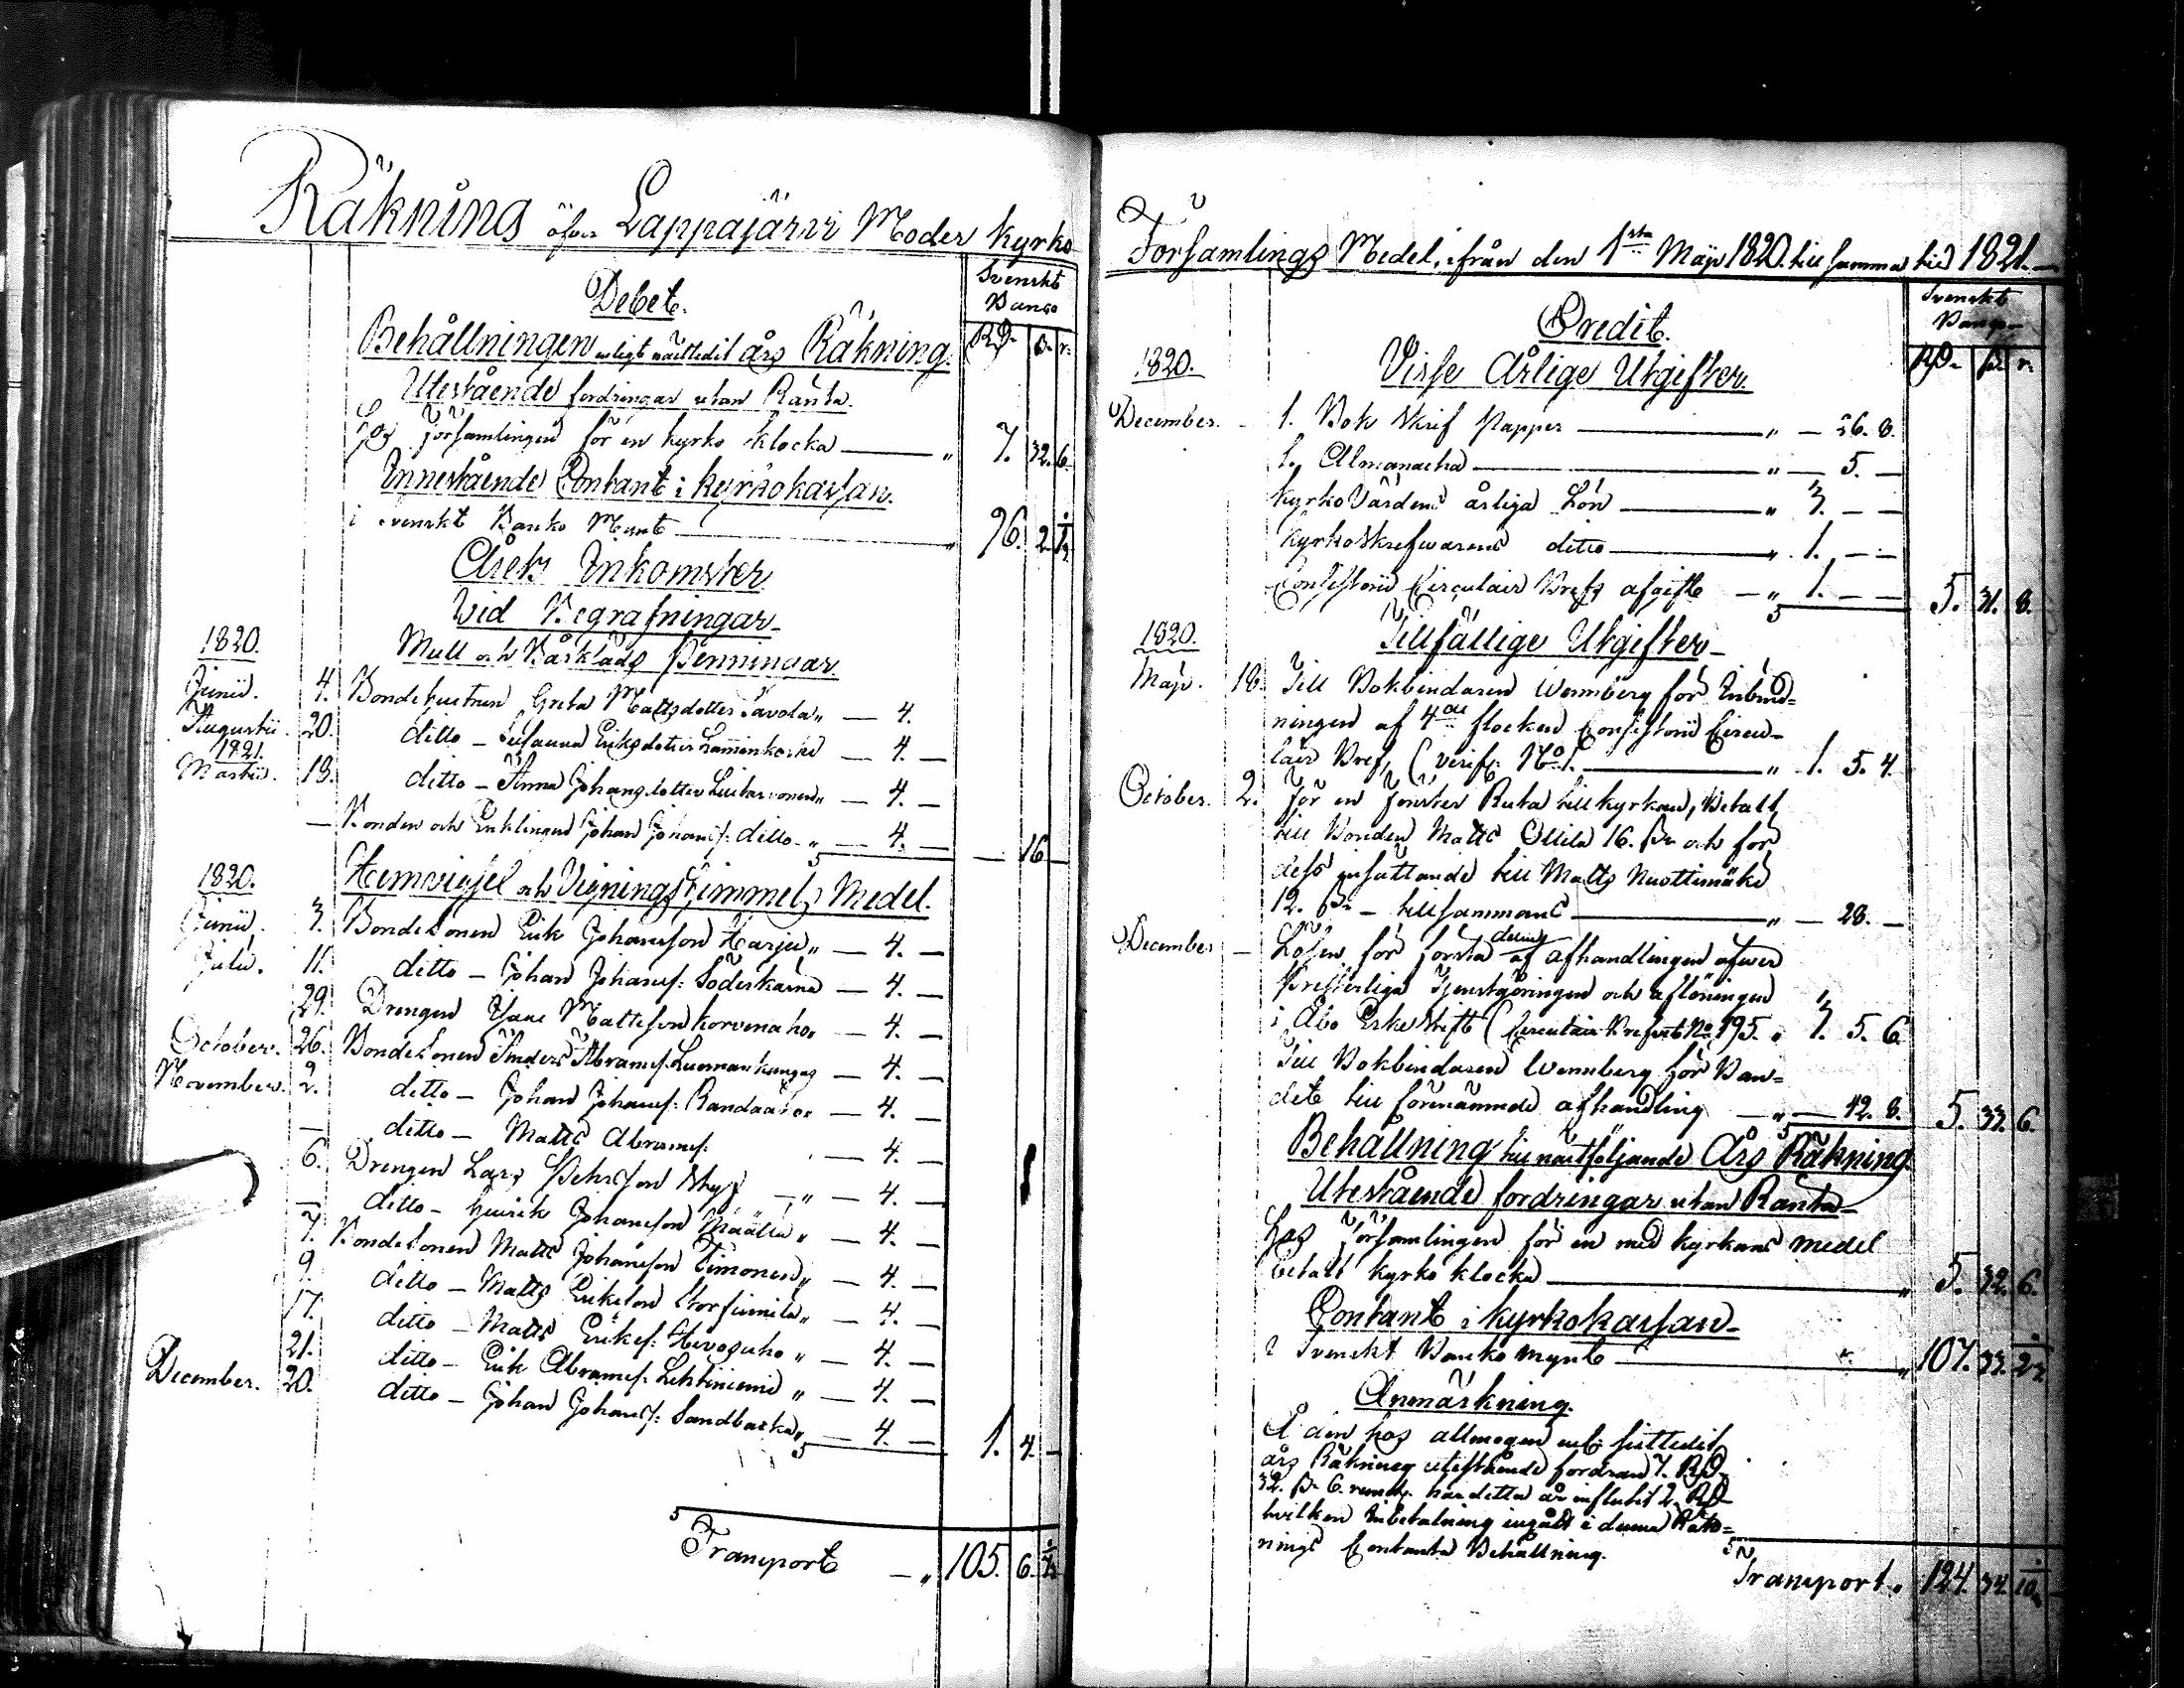 Räkning öfver Lappajärvi Moder kyrko
Svenskt
Banco
Debet.
Behållningen enligt nästledit års Räkning.
RD. s. r.
Utestående fordringar utan Ränta.
Hos Församlingen för en kyrko klocka — " 7. 32. 6.
Innestående Contant i kyrkokassan.
i Svenskt Banko Mynt — " 96. 2.
Årets Inkomster
Vid Begrafningar
Mull och Bårkläds Penningar.
1820.
Junii. 4. Bondehustrun Greta Mattsdotter Savola " — 4.
Augustii. 20. ditto — Susanna Eriksdotter — 4. —
1821.
Martii. 18. ditto — Anna Johansdotter " — 4. —
— Bonden och Enklingen Johan Johansf: ditto " — 4. — — 16 —
1820.
Hemvigsel och Vignings Himmels Medel.
Junii. 3. Bondesonen Erik Johansson Harju " — 4. —
Julii. 11. ditto — Johan Johansf: Söderkärnä — 4. —
29. Drengen Isac Mattsson Korvenaho " — 4. —
October. 26. Bondesonen Anders Abramsf. Luomankangas — 4. —
November. 2. ditto — Johan Johansf: — 4. —
— ditto — Matts Abramsf: — 4. —
6. Drengen Lars Pehrsson — " — 4. —
— ditto — Henrik Johansson Määttä " — 4. —
7. Bondesonen Matts Johansson Timonen " — 4. —
9. ditto — Matts Eriksson " — 4. —
17. ditto — Matts Eriksf: " — 4. —
21. ditto — Erik Abramsf: Lehtiniemi " — 4. —
December. 20. ditto — Johan Johansf: Sandbacka " — 4. — 1. 4. —
Transport — " 105. 6.
Församlings Medel, ifrån den 1sta Maji 1820. till samma tid 1821. —
Svenskt
Banco
Credit.
RD. ß. r.
1820.
Visse Årlige Utgifter.
December. — 1. Bok Skrif Papper — " — 26. 8.
1. Almanacka — " — 5. —
Kyrko Värdens årliga Lön — " 3. — —
Kyrkoskrifvarens ditto — " 1. — —
Consistorii Circulair Brefs afgift — " 1. — — 5. 31. 8.
1820.
Tillfällige Utgifter
Maji. 18. Till Bokbindaren Wennberg för Inbind=
ningen af 4de flocken Consistorii Circu=
lair Bref, (verif: No 1. — " 1. 5. 4.
October. 2. För en Fönster Ruta till kyrkan, Betalt
till Bonden Matts Ollila 16. ß och för
dess insättande till Matts Nuottimäki
12. ß — tillsammans — " — 28. —
December — Lösen för första delen af afhandlingen öfwer
Presterliga Tjenstgöringen och aflöningen
i Åbo Erke Stift (Circulair Brefvet No 195. " 3. 5. 6.
Till Bokbindaren Wennberg för Ban=
det till förenämnde afhandling — " — 42. 8. 5. 33. 6.
Behållning till nästföljande Års Räkning.
Utestående fordringar utan Ränta
Hos Församlingen för en med kyrkans medel
betalt kyrko klocka — " 5. 32. 6.
Contant i kyrkokassan
i Svenskt Banko mynt — " 107. 33.
Anmärkning.
Å den hos allmogen enl: sistledit
års Räkning utestående fordran 7. RD
32. ß 6. har detta år influtit 2. RD
hvilken Inbetalning ingått i denna Räk=
nings Contanta Behållning.
Transport. " 124. 34. 10